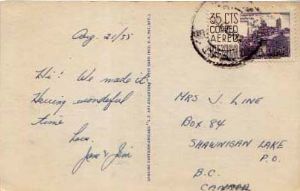 Aug. 21/55
Hi! We made it.
Having wonderful
time
Love.
Jean & Jim
35 CTS
CORREO
AEREO
MEXICO
MRS J. LINE
BOX 84
SHAWNIGAN LAKE
P.O.
B.C.
CANADA